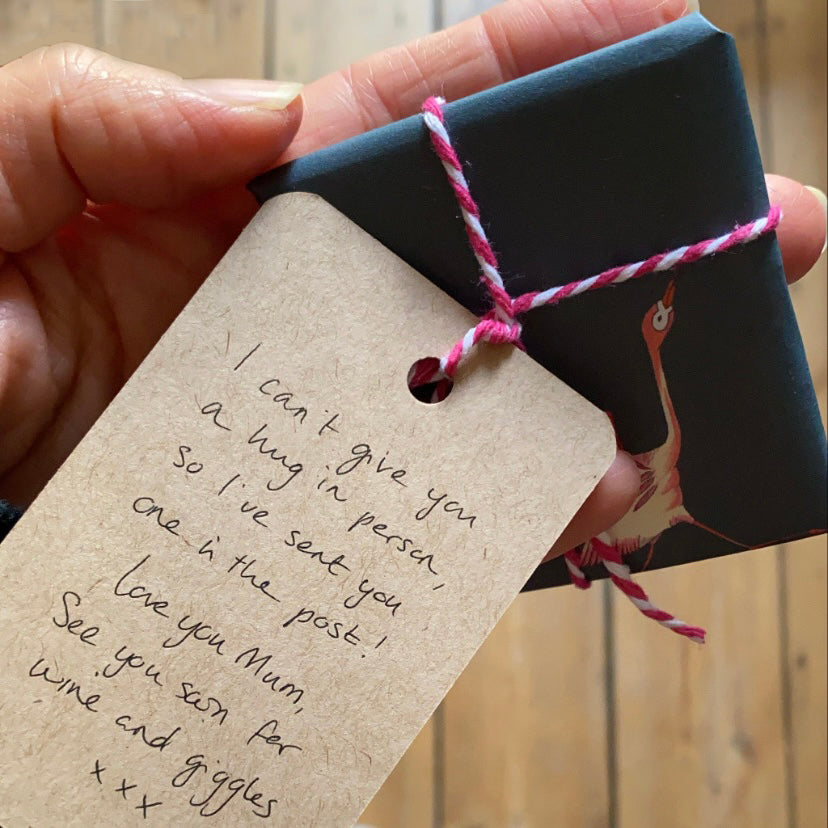 I can't give you
a hug in person,
so I've sent you
one in the post!
Love you Mum,
See you soon for
wine and giggles
x x x